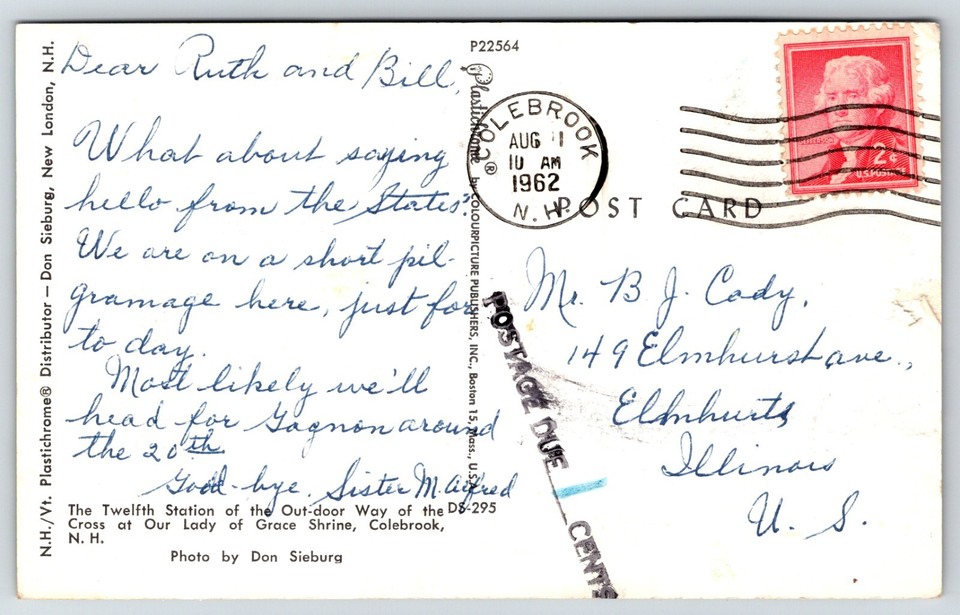 P22564
Dear Ruth and Bill,
What about saying
hello from the States?
We are on a short pil-
gramage here, just for
to day.
Most likely we'll
head for Gagnon around
the 20th
Good-bye. Sister M. Alfred
The Twelfth Station of the Out-door Way of the
Cross at Our Lady of Grace Shrine, Colebrook,
N. H.
DS-295
Photo by Don Sieburg
N.H./Vt. Plastichrome® Distributor — Don Sieburg, New London, N.H.
Plastichrome ® by COLOURPICTURE PUBLISHERS, INC., Boston 15, Mass., U.S.A.
COLEBROOK
AUG 1
10 AM
1962
N. H.
2¢
U.S. POSTAGE
POST CARD
POSTAGE DUE CENTS
Mr. B J. Cody,
149 Elmhurst ave.,
Elmhurts
Illinois
U. S.